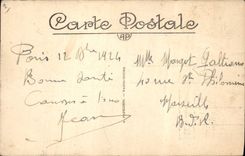 Carte Postale
Paris 12 Xbre 1924
Bonne Santé
à tous
Jean
Mlle Margot Galliano
40 rue St Philomène
Marseille
B.d.R.